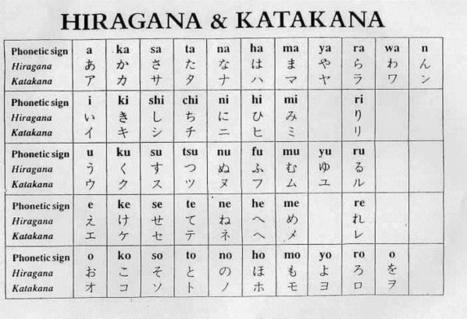 HIRAGANA & KATAKANA
Phonetic sign a ka sa ta na ha ma ya ra wa n
Hiragana あ か さ た な は ま や ら わ ん
Katakana ア カ サ タ ナ ハ マ ヤ ラ ワ ン
Phonetic sign i ki shi chi ni hi mi ri
Hiragana い き し ち に ひ み り
Katakana イ キ シ チ ニ ヒ ミ リ
Phonetic sign u ku su tsu nu fu mu yu ru
Hiragana う く す つ ぬ ふ む ゆ る
Katakana ウ ク ス ツ ヌ フ ム ユ ル
Phonetic sign e ke se te ne he me re
Hiragana え け せ て ね へ め れ
Katakana エ ケ セ テ ネ ヘ メ レ
Phonetic sign o ko so to no ho mo yo ro o
Hiragana お こ そ と の ほ も よ ろ を
Katakana オ コ ソ ト ノ ホ モ ヨ ロ ヲ